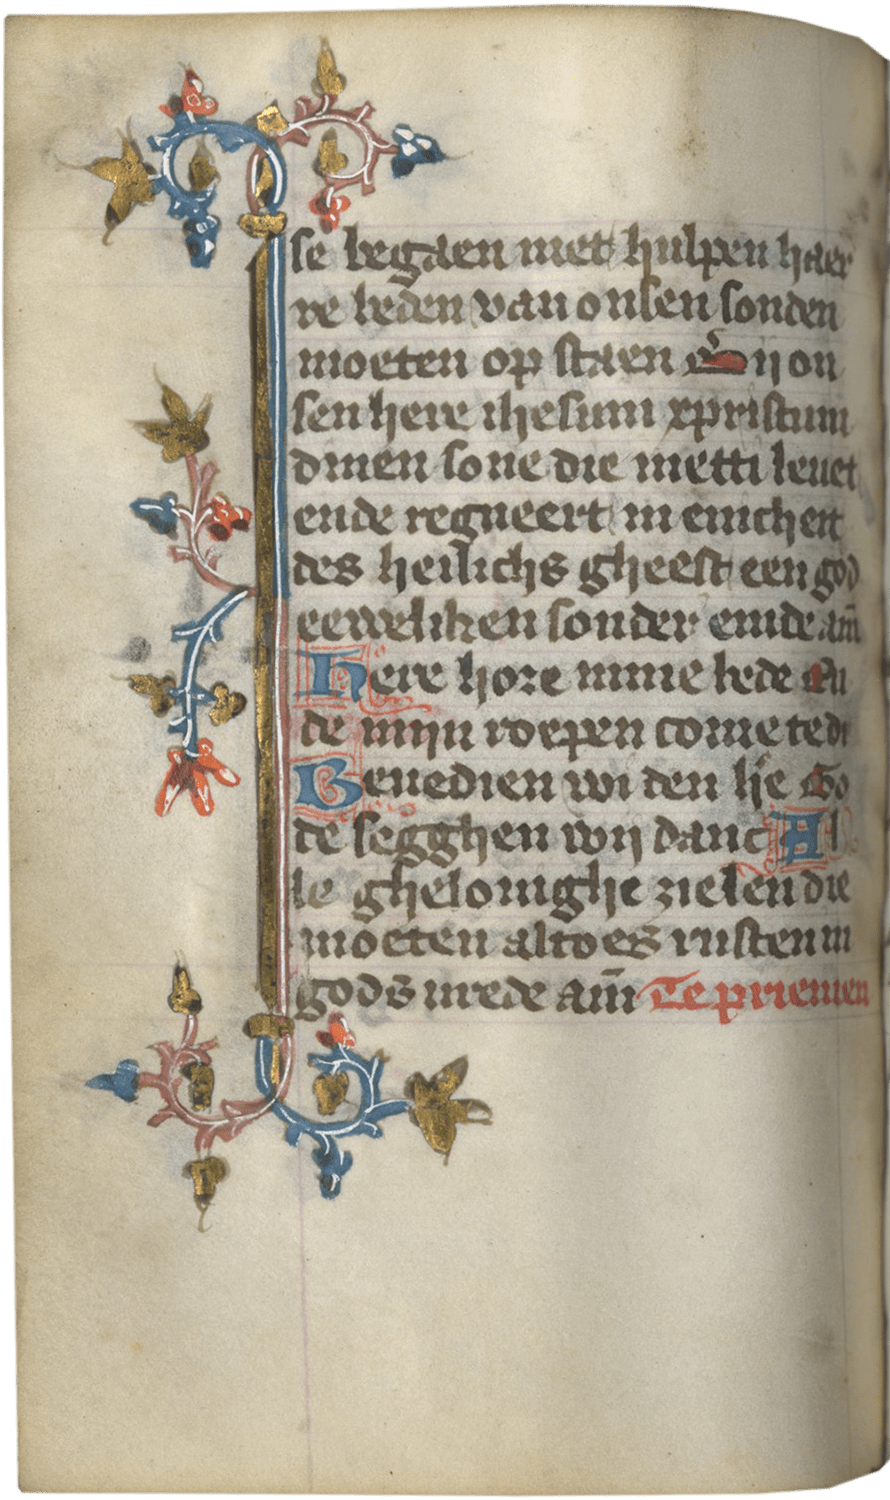 se begaen met hulpen haer
re beden van onsen sonden
moeten op staen Bij on
sen here ihesum xpristum
dinen sone die metti leuet
ende regneert in enicheit
des heilichs gheest een god
eeweliken sonder einde am̄
Here hore mine bede en
de mijn roepen come te di
Benedien wi den h̄e Go
de segghen wij danc Al
le ghelouighe zielen die
moeten altoes rusten in
gods vrede am̄ Te priemen